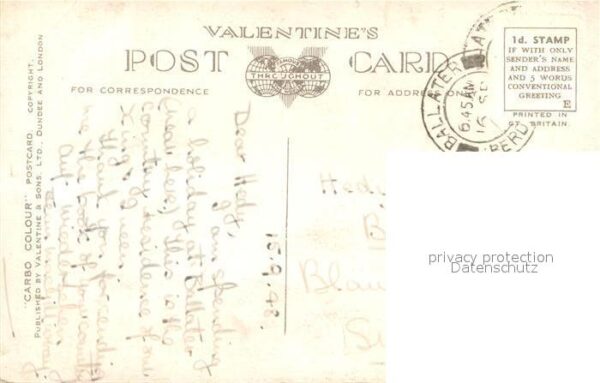 VALENTINE'S
POST CARD
FAMOUS
THROUGHOUT
THE WORLD
FOR CORRESPONDENCE
FOR ADDRESS ONLY
1d. STAMP
IF WITH ONLY
SENDER'S NAME
AND ADDRESS
AND 5 WORDS
CONVENTIONAL
GREETING
E
PRINTED IN
GT. BRITAIN.
BALLATER
6.45 AM
16 SP
"CARBO COLOUR" POSTCARD. COPYRIGHT.
PUBLISHED BY VALENTINE & SONS, LTD., DUNDEE AND LONDON
15.9.
Dear Hedy,
I am spending
a holiday at Ballater
(near here) this is the
country residence of our
King & Queen.
Thank you for sending
me the book of your country
Hedy
B
Blau
S
privacy protection
Datenschutz